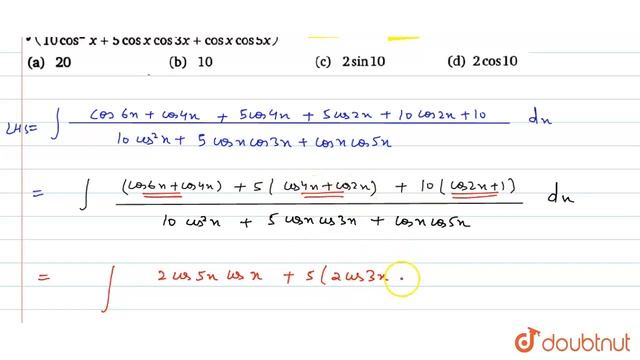 (10 cos² x + 5 cos x cos 3x + cos x cos 5x)
(a) 20 (b) 10 (c) 2 sin 10 (d) 2 cos 10
LHS = ∫ (cos6x + cos4x + 5cos4x + 5cos2x + 10cos2x + 10) / (10 cos²x + 5 cosx cos3x + cosx cos5x) dx
= ∫ ((cos6x + cos4x) + 5(cos4x + cos2x) + 10(cos2x + 1)) / (10 cos²x + 5 cosx cos3x + cosx cos5x) dx
= ∫ 2 cos 5x cos x + 5(2cos3x .
doubtnut